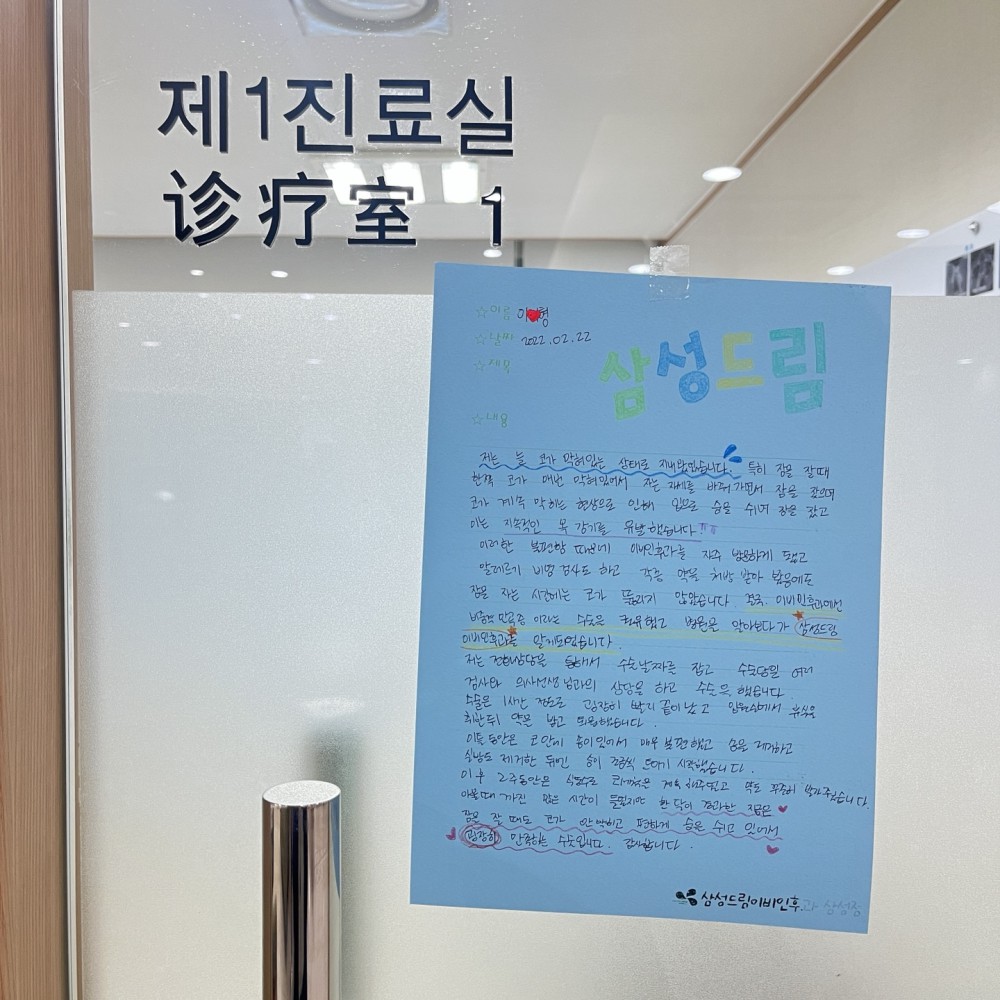 제1진료실
诊疗室 1
☆이름
☆날짜 2022.02.22
☆제목
삼성드림
☆내용
저는 늘 코가 막혀있는 상태로 지내왔었습니다. 특히 잠을 잘 때
한쪽 코가 매번 막혀있어서 자는 자세를 바꿔가면서 잠을 잤으며
코가 계속 막히는 현상으로 인해 입으로 숨을 쉬며 잠을 잤고
이는 지속적인 목감기를 유발했습니다!!
이러한 불편함 때문에 이비인후과를 자주 방문하게 됐고
알레르기 비염 검사도 하고 각종 약을 처방 받아 봤음에도
잠을 자는 시간에는 코가 뚫리지 않았습니다. 결국, 이비인후과에선
이라는 수술을 병원을 알아보다가 삼성드림
이비인후과를 알게되었습니다
저는 전화상담을 통해서 수술날짜를 잡고 수술당일 여러
검사와 의사선생님과의 상담을 하고 수술을 했습니다.
수술은 1시간 정도로 굉장히 빨리 끝이났고 입원실에서 휴식을
취한뒤 약을 받고 퇴원했습니다.
이틀동안은 코안에 솜이있어서 매우 불편했고 솜을 제거하고
실밥도 제거한 뒤엔 숨이 조금씩 트이기 시작했습니다.
이후 2주동안은 식염수로 코세척을 계속 해주었고 약도 꾸준히 발라주었습니다.
아물때 까진 많은 시간이 들었지만 한 달이 경과한 지금은
잠을 잘 때도 코가 안막히고 편하게 숨을 쉬고 있어서
굉장히 만족하는 수술입니다. 감사합니다.
삼성드림이비인후과 삼성점